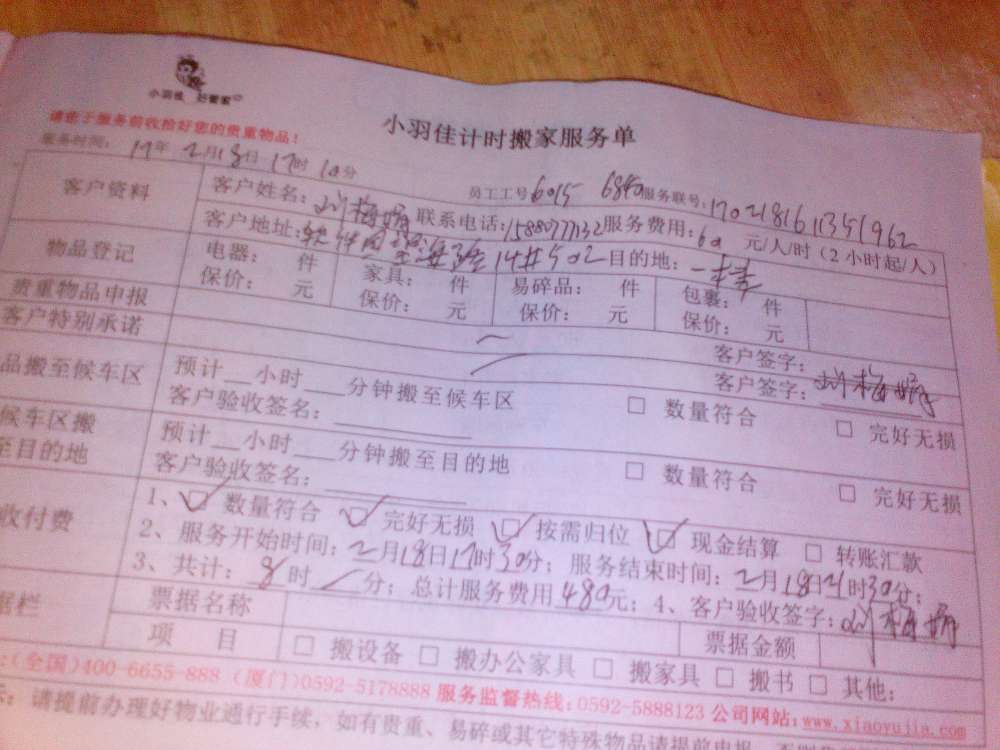 小羽佳 好管家
小羽佳计时搬家服务单
请您于服务前收拾好您的贵重物品!
服务时间: 17年2月18日17时10分 员工工号6015 6840 服务联号:1702181611351962
客户资料 客户姓名: 刘梅娟 联系电话:1588077132 服务费用:60 元/人/时(2小时起/人)
客户地址:软件园 14#502 目的地:一楼
物品登记 电器: 件 家具: 件 易碎品: 件 包裹: 件
保价: 元 保价: 元 保价: 元 保价: 元
贵重物品申报 客户签字:
客户特别承诺 客户签字: 刘梅娟
品搬至候车区 预计__小时___分钟搬至候车区 □ 数量符合 □ 完好无损
客户验收签名:
候车区搬至目的地 预计__小时___分钟搬至目的地 □ 数量符合 □ 完好无损
客户验收签名:
收付费 1、☑ 数量符合 ☑ 完好无损 ☑ 按需归位 ☑ 现金结算 □ 转账汇款
2、服务开始时间:2月18日17时30分; 服务结束时间:2月18日21时30分;
3、共计: 8时/分; 总计服务费用480元; 4、客户验收签字: 刘梅娟
据栏 票据名称 票据金额
项 目 □ 搬设备 □ 搬办公家具 □ 搬家具 □ 搬书 □ 其他:
:(全国)400-6655-888 (厦门)0592-5178888 服务监督热线:0592-5888123 公司网站:www.xiaoyujia.com
示: 请提前办理好物业通行手续,如有贵重、易碎或其它特殊物品请提前申报,